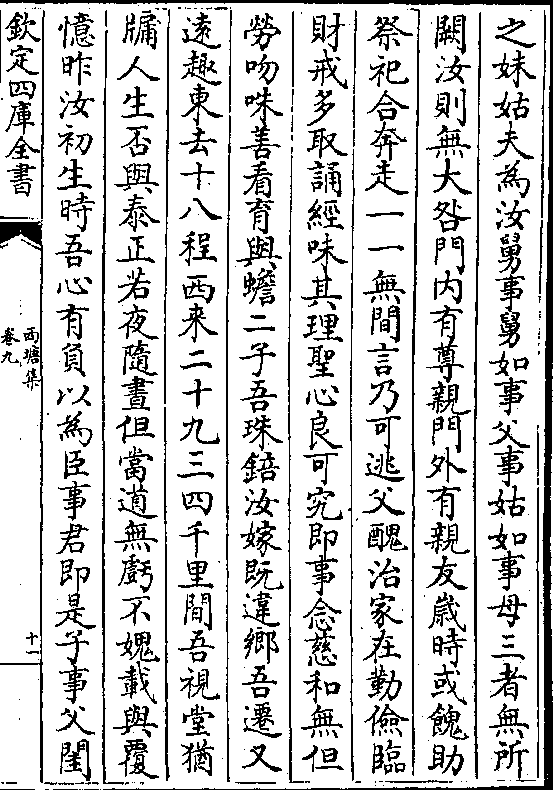 之妹姑夫為汝舅事舅如事父事姑如事母三者無所
闕汝則無大咎門内有尊親門外有親友歲時或餽助
祭祀合奔走一一無間言乃可逃父醜治家在勤儉臨
財戒多取誦經味其理聖心良可究即事念慈和無但
勞吻咮善看育與蟾二子吾珠錇汝嫁既違鄉吾遷又
逺趣東去十八程西来二十九三四千里間吾視堂猶
牖人生否與泰正若夜隨晝但當道無虧不媿載與覆
憶昨汝初生時吾心有負以為臣事君即是子事父閨
欽定四庫全書
西塘集
卷九
十一